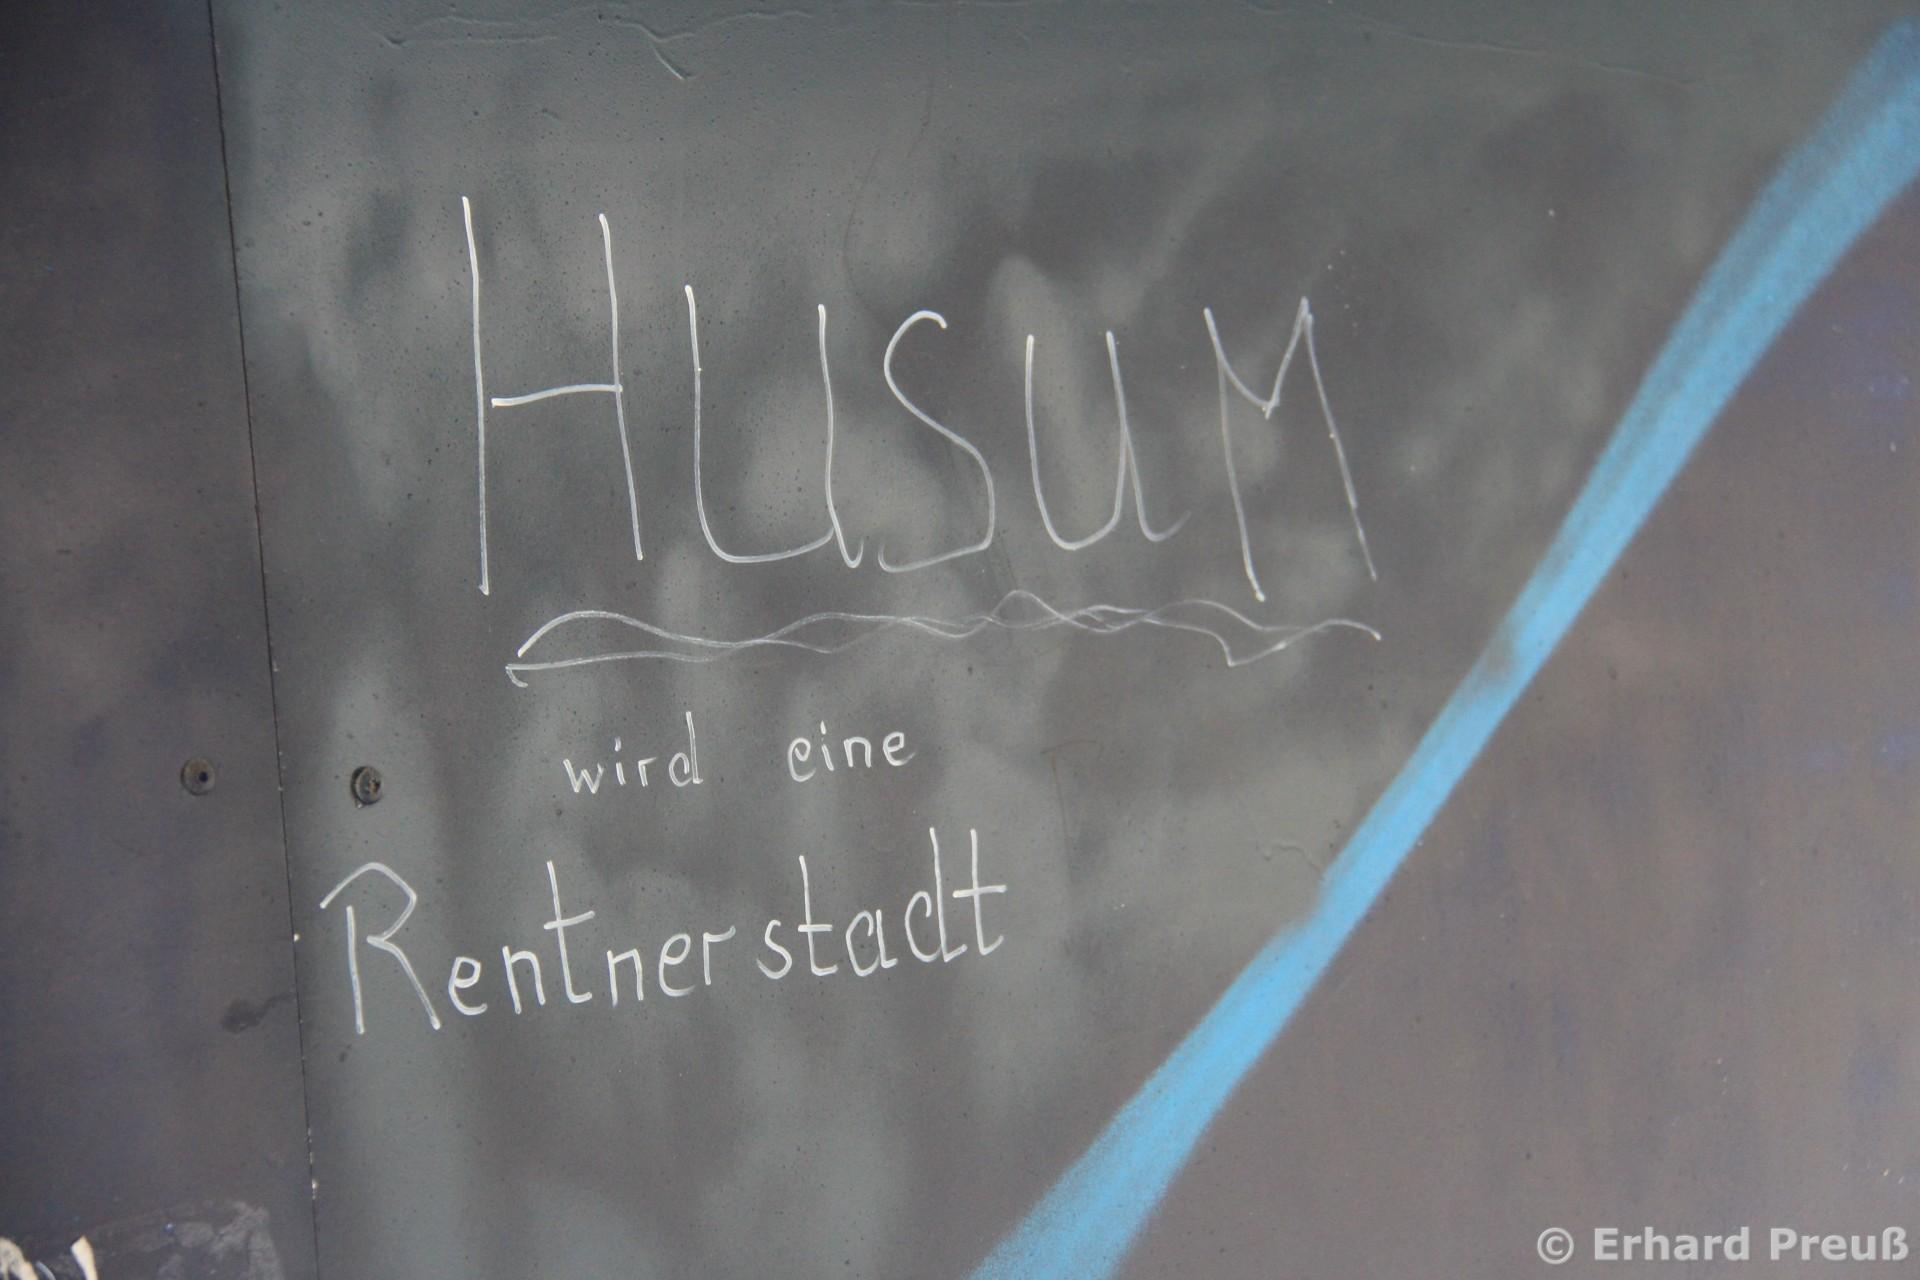 HUSUM
wird eine
Rentnerstadt
© Erhard Preuß